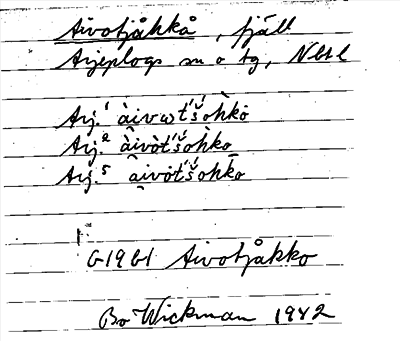 Aivotjåkkå, fjäll
Arjeplogs sn o tg, Nbtl
Arj.¹ àivωt́šohkò
Arj.² àivòt́šòhko
Arj.⁵ àivòt́šohko
G1961 Aivotjåkko
Bo Wickman 1942